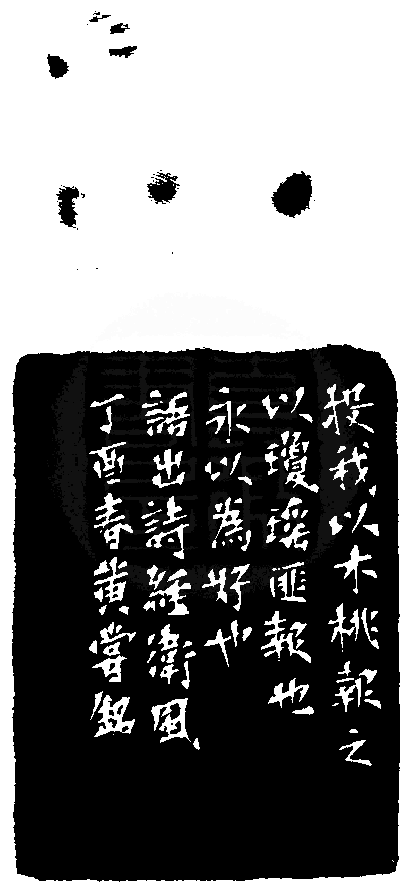 投我以木桃報之
以瓊瑤匪報也
永以為好也
語出詩經衛風
丁酉春黃嘗銘